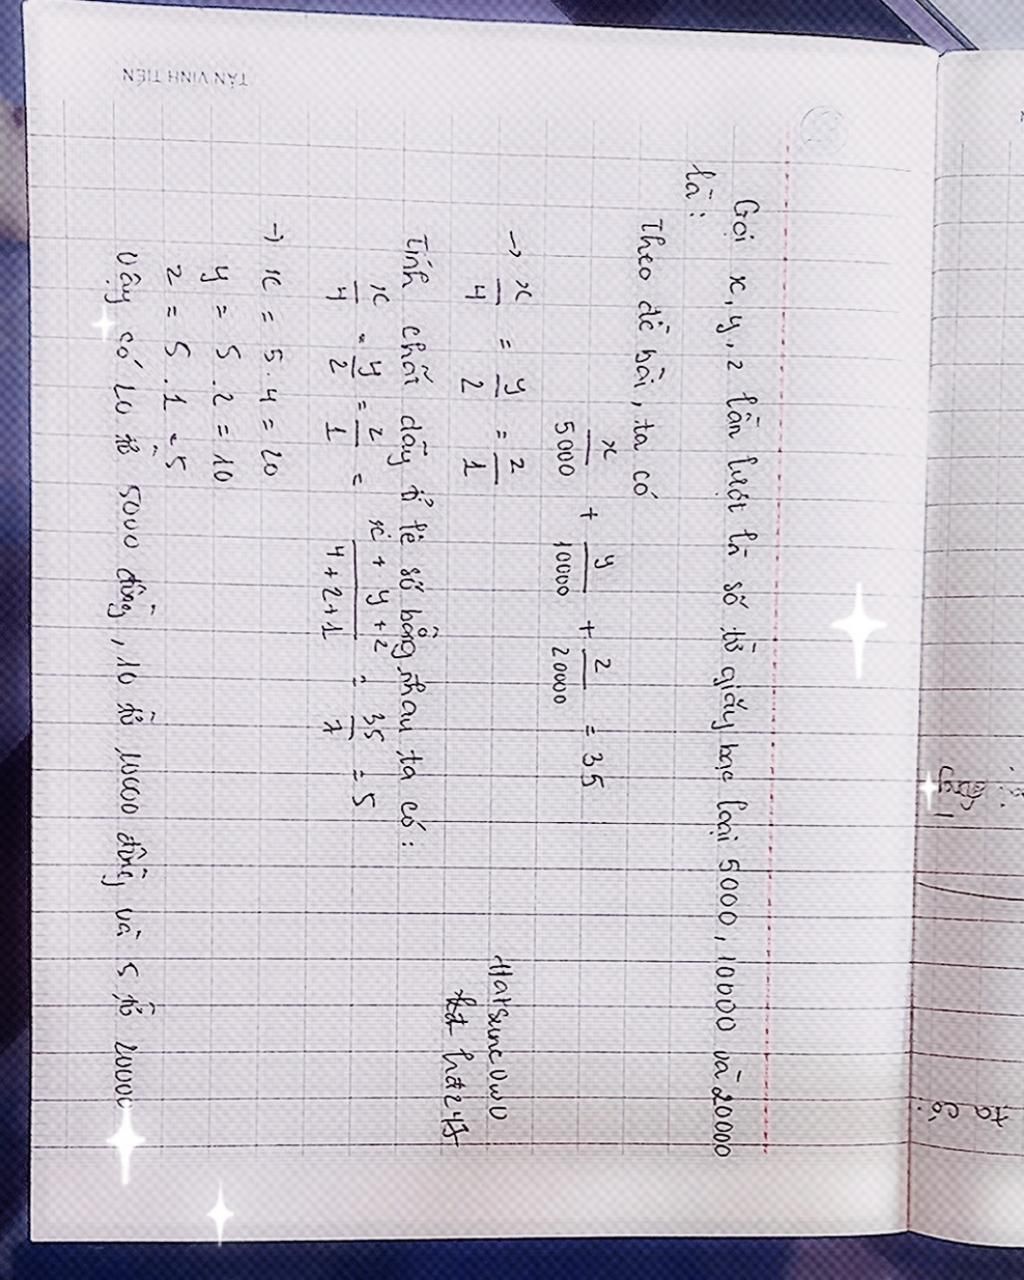 TÂN VINH TIẾN
Gọi x, y, z lần lượt là số tờ giấy bạc loại 5000, 10000 và 20000
là:
Theo đề bài, ta có
x/5000 + y/10000 + z/20000 = 35
→ x/4 = y/2 = z/1
Tính chất dãy tỉ lệ số bằng nhau ta có:
x/4 = y/2 = z/1 = x + y + z/4 + 2 + 1 = 35/7 = 5
→ x = 5 . 4 = 20
y = 5 . 2 = 10
z = 5 . 1 = 5
Vậy có 20 tờ 5000 đồng, 10 tờ 10000 đồng, và 5 tờ 20000
HatsuneUwU
ta có: